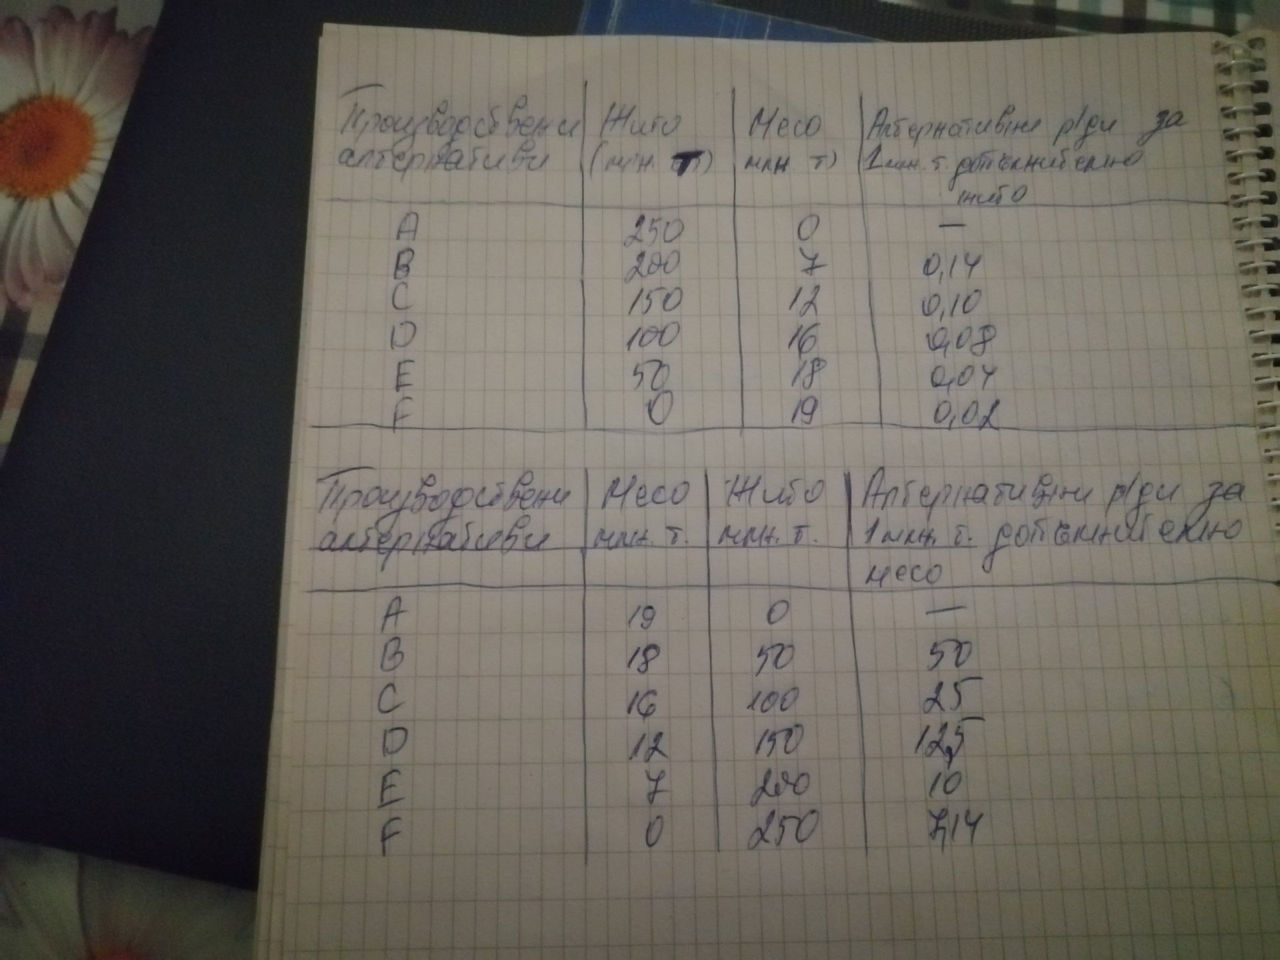 Производствени Жито Месо Алтернативни р/ди за
алтернативи (млн. т) млн т) 1 млн. т. допълнително
жито
A 250 0 —
B 200 7 0,14
C 150 12 0,10
D 100 16 0,08
E 50 18 0,04
F 0 19 0,02
Производствени Месо Жито Алтернативни р/ди за
алтернативи млн. т. млн. т. 1 млн. т. допълнително
месо
A 19 0 —
B 18 50 50
C 16 100 25
D 12 150 12,5
E 7 200 10
F 0 250 7,14